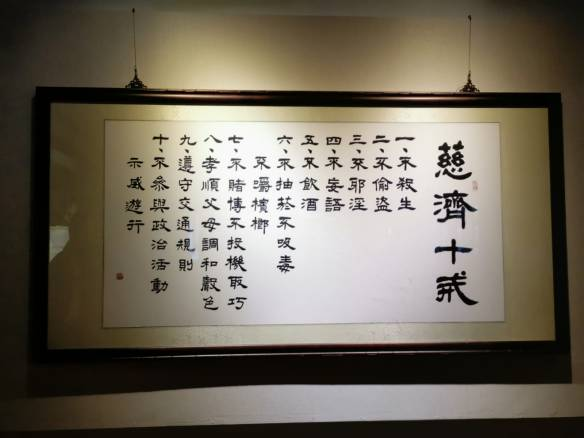 慈濟十戒
一、不殺生
二、不偷盜
三、不邪淫
四、不妄語
五、不飲酒
六、不抽菸不吸毒
不嚼檳榔
七、不賭博不投機取巧
八、孝順父母調和聲色
九、遵守交通規則
十、不參與政治活動
示威遊行